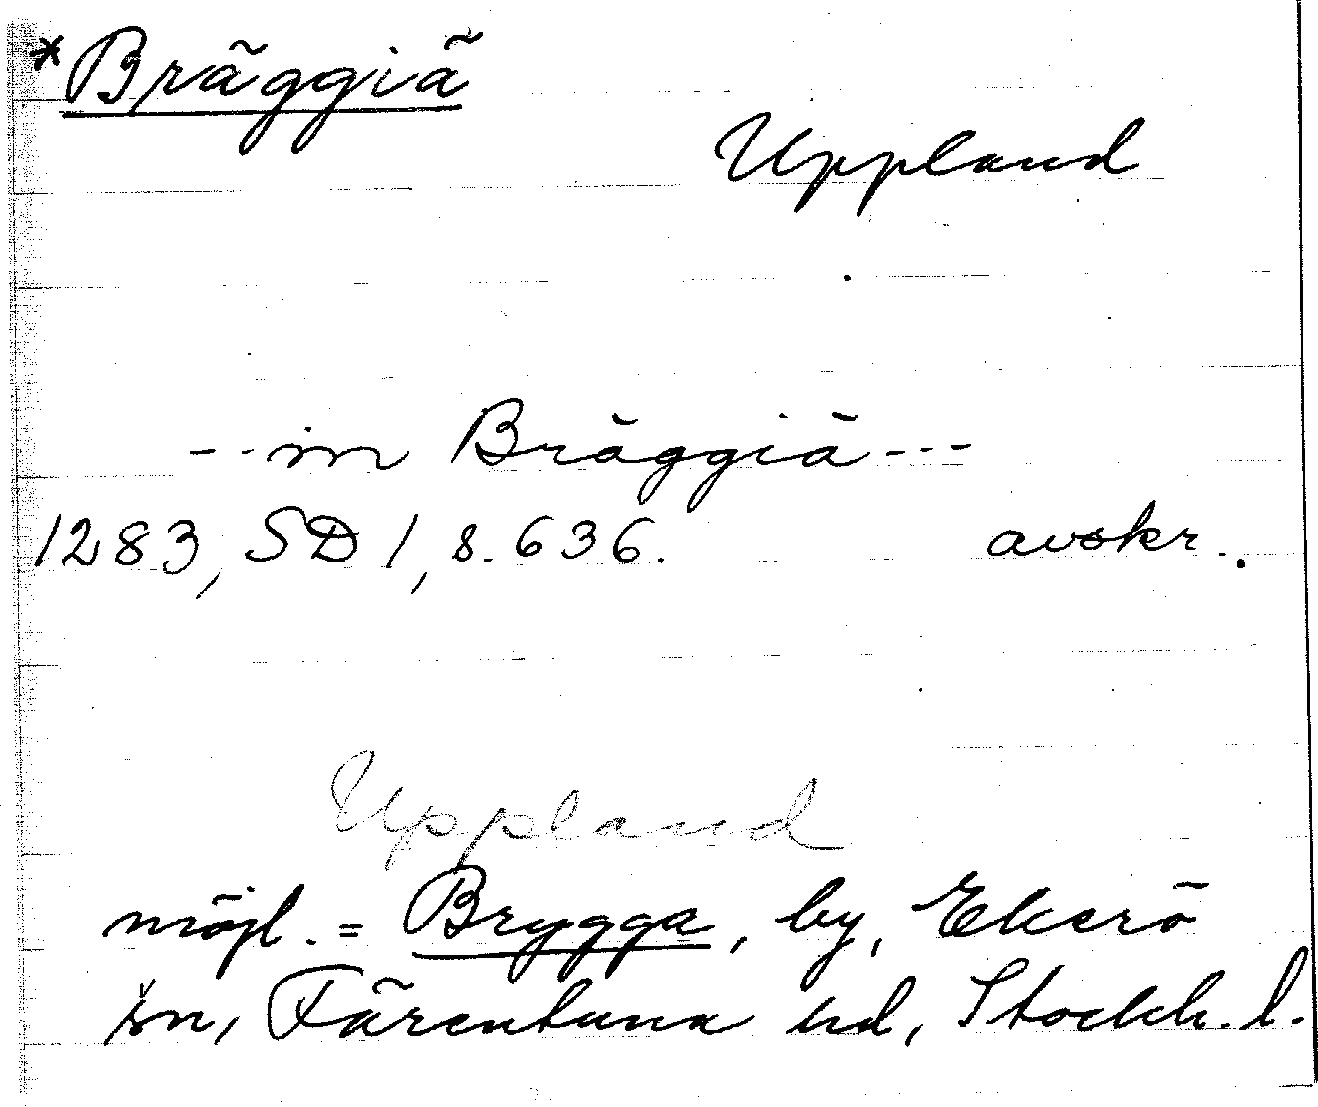 *Bräggiä
Uppland
- - in Bräggiä - - -
1283, SD 1, s. 636. avskr.
Uppland
möjl. = Brygga, by, Ekerö
sn, Färentuna hd, Stockh. l.